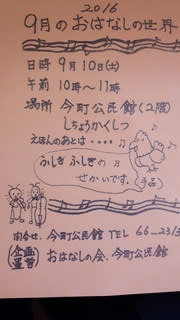 2016
9月のおはなしの世界
日時 9月10日(土)
午前 10時~11時
場所 今町公民館(2階)
しちょうかくしつ
えほんのあとは・・・・
ふしぎ ふしぎの
せかいです。
問合せ. 今町公民館 TEL 66-23
企画
運営 おはなしの会. 今町公民館